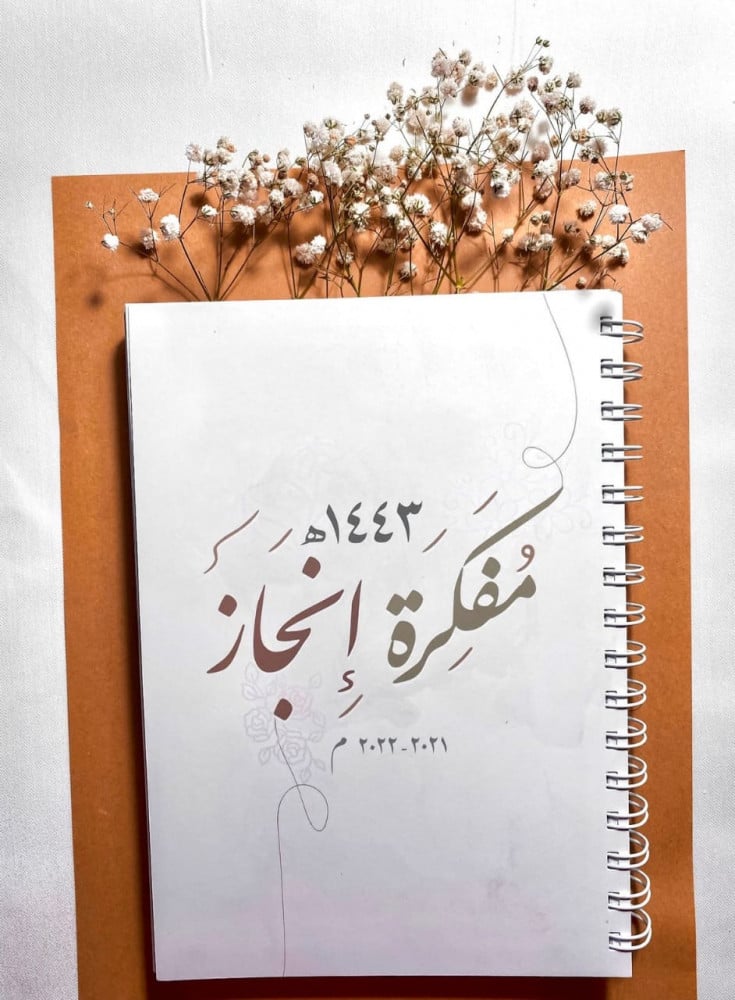 ١٤٤٣هـ
مُفكِرة إنجاز
٢٠٢١-٢٠٢٢ م